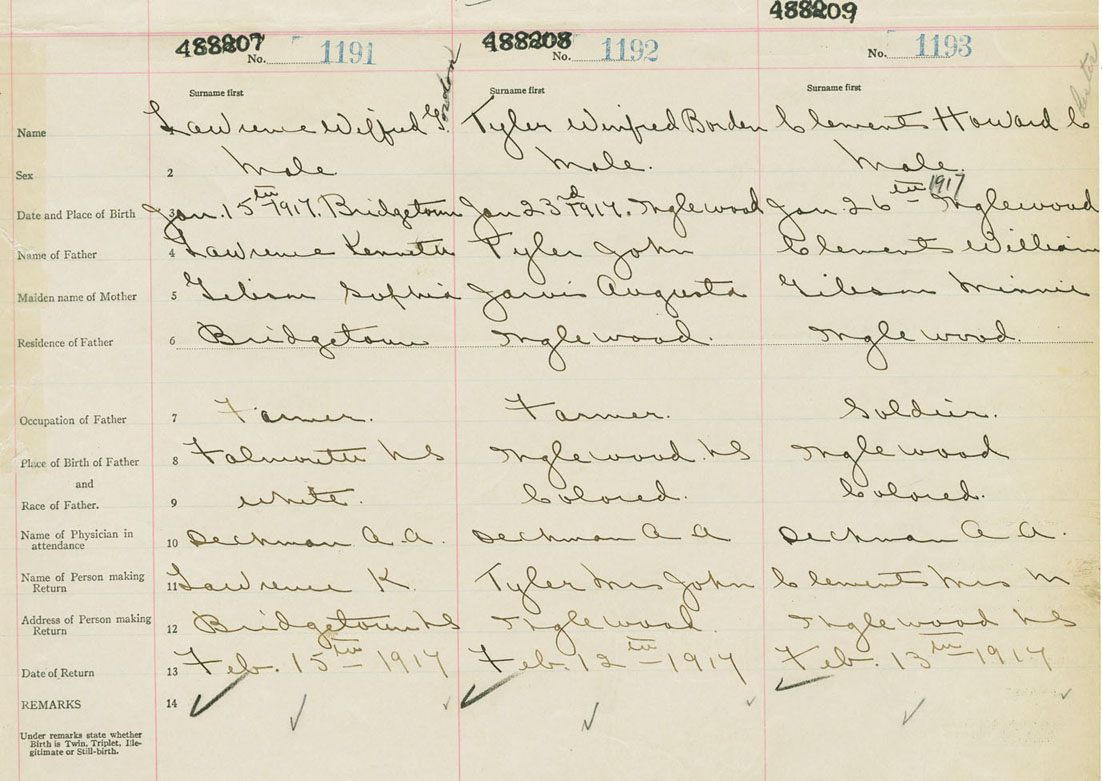 488209
488207 488208
No. 1191 No. 1192 No. 1193
Surname first Surname first Surname first
Name Lawrence Wilfred G. Tyler Winfred Borden Clements Howard C
Gordon
Sex 2 Male Male. Male.
Date and Place of Birth 3 Jan. 15th 1917. Bridgetown Jan 23rd 1917. Inglewood Jan 26th 1917 Inglewood
Name of Father 4 Lawrence Kenneth Tyler John Clements William
Maiden name of Mother 5 Gibson Sophia Jarvis Augusta Gibson Minnie
Residence of Father 6 Bridgetown Inglewood. Inglewood.
Occupation of Father 7 Farmer. Farmer. Soldier.
Place of Birth of Father 8 Falmouth NS Inglewood. NS Inglewood
and
Race of Father. 9 White. Colored. Colored.
Name of Physician in
attendance 10 Dechman A. A. Dechman A A Dechman A A.
Name of Person making
Return 11 Lawrence K. Tyler Mrs John Clements Mrs M
Address of Person making
Return 12 Bridgetown NS Inglewood. Inglewood NS
Date of Return 13 Feb. 15th 1917 Feb. 12th 1917 Feb. 13th 1917
REMARKS 14
Under remarks state whether
Birth is Twin, Triplet, Ille-
gitimate or Still-birth.